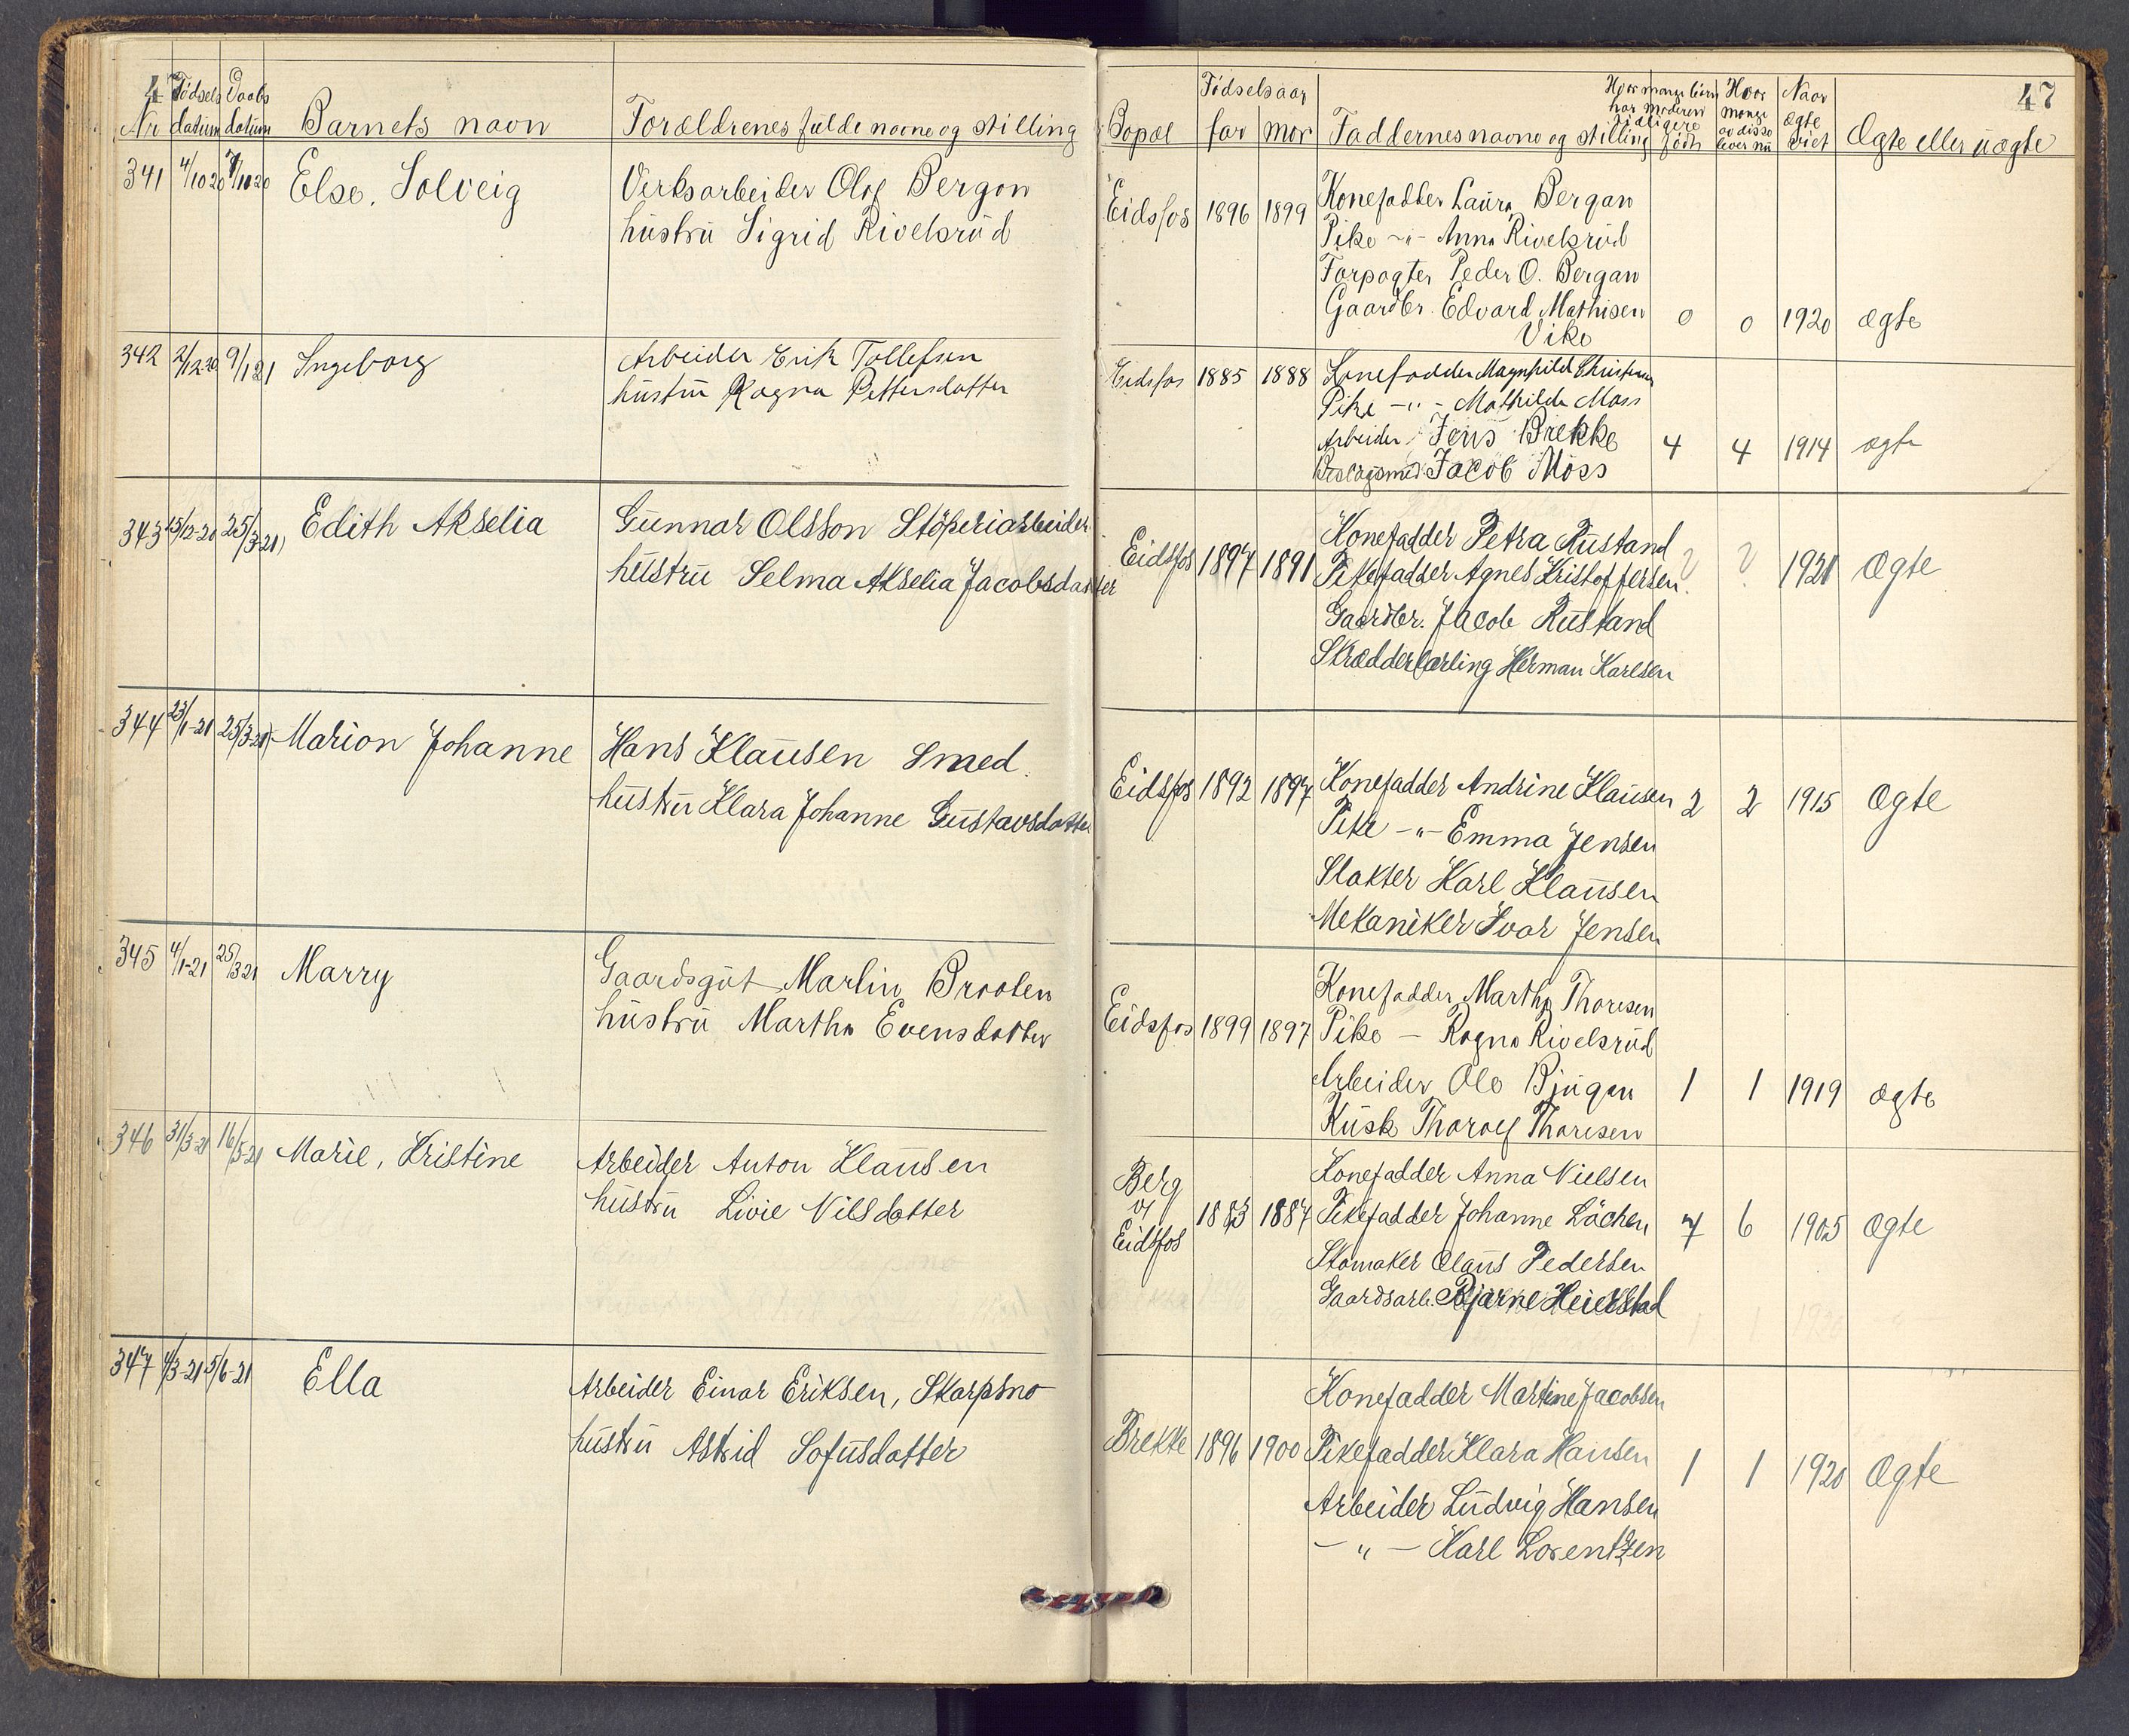 47
Nr
Fødsels datum
Daabs datum
Barnets navn
Forældrenes fulde navne og stilling
341 4/10 20 7/11 20 Else, Solveig
Verksarbeider Olof Bergan
hustru Sigrid Rivelsrud
342 2/12 20 9/1 21 Ingeborg
Arbeider Erik Tollefsen
hustru Ragna Pettersdatter
343 15/12-20 25/3-21) Edith Akselia
Gunnar Olsson Støperiarbeider
hustru Selma Akselia Jacobsdatter
344 23/1-21 25/3-21) Marion Johanne
Hans Klausen Smed.
hustru Klara Johanne Gustavsdatter
345 4/1-21 25/3 21 Marry
Gaardsgut Marlin Braaten
hustru Martha Evensdatter
346 31/3-21 16/5-21 Marie, Kristine
Arbeider Anton Klausen
hustru Livie Nilsdatter
347 4/3-21 5/6-21 Ella
Arbeider Einar Eriksen, Skarpsno
hustru Astrid Sofusdatter
47
Bopæl
Fødselsaar
far mor
Faddernes navne og stilling
Hvor mange børn har moderen tidligere født
Hvor mange av disse lever nu
Naar ægte viet
Ægte eller uægte
Eidsfos 1896 1899 Konefadder Laura Bergan
Pike -"- Anna Rivelsrud
Forpagter Peder O. Bergan
Gaardbr. Edvard Mathisen 0 0 1920 ægte
Vike
Eidsfos 1885 1888 Konefadder Magnhild
Pike -"- Mathilde Moss
Arbeider Jens Brekke 4 4 1914 ægte
Jacob Moss
Konefadder Petra Rustand
Eidsfos 1897 1891 Pikefadder Agnes Kristoffersen ? ? 1921 Ægte
Gaardbr. Jacob Rustand
Skrædderlærling Herman Karlsen
Eidsfos 1892 1897 Konefadder Andrine Klausen 2 2 1915 Ægte
Pike -"- Emma Jensen
Slakter Karl Klausen
Mekaniker Ivar Jensen
Konefadder Martha Thoresen
Eidsfos 1899 1897 Pike - Ragna Rivelsrud
Arbeider Ole Bjugan 1 1 1919 ægte
Kusk Tharolf Thoresen
Konefadder Anna Nielsen
Berg v/ Eidsfos 1883 1887 Pikefadder Johanne Låchen 7 6 1905 Ægte
Skomaker Olaus Pedersen
Gaardsarb. Bjarne Heierstad
Konefadder Martine Jacobsen
Brekke 1896 1900 Pikefadder Klara Hansen 1 1 1920 Ægte
Arbeider Ludvig Hansen
-"- Karl Lorentzen